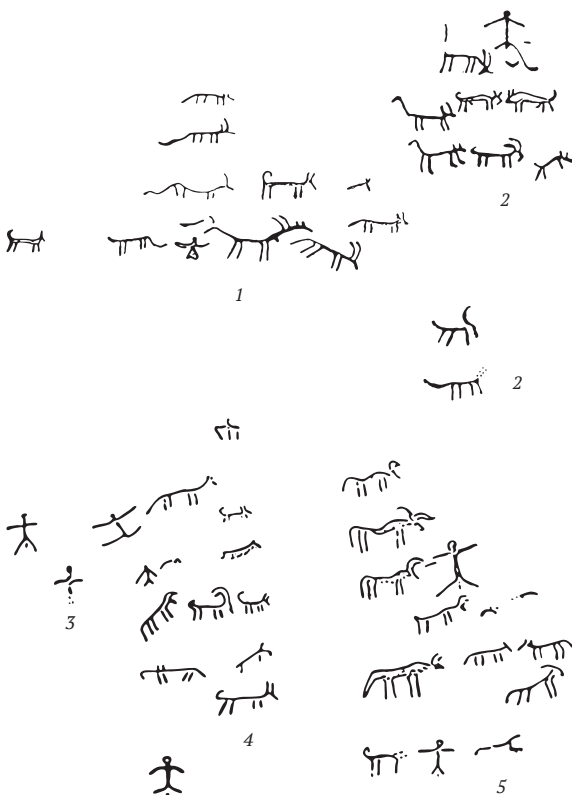 2
1
2
3
4
5